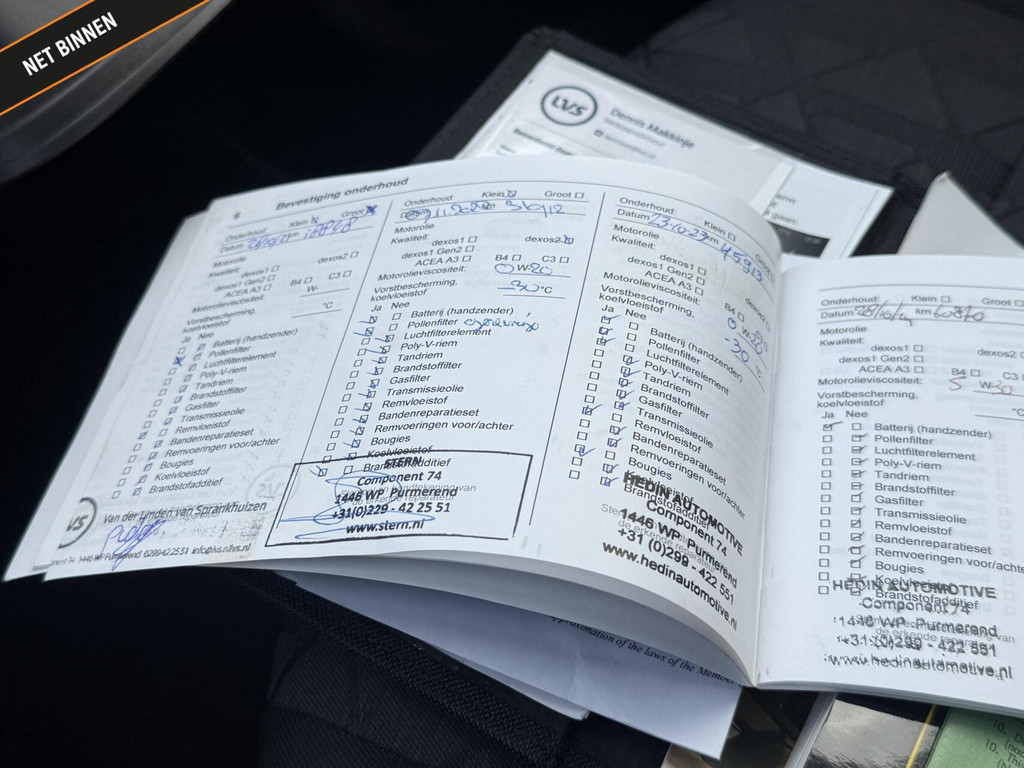 NET BINNEN
LVS
Dennis Makkinje
6 Bevestiging onderhoud
Onderhoud: Klein Groot
Datum km
Motorolie
Kwaliteit: dexos1 dexos2
dexos1 Gen2
ACEA A3 B4 C3
Motorolieviscositeit: W-
Vorstbescherming, °C
koelvloeistof
Ja Nee
Batterij (handzender)
Pollenfilter
Luchtfilterelement
Poly-V-riem
Tandriem
Brandstoffilter
Gasfilter
Transmissieolie
Remvloeistof
Bandenreparatieset
Remvoeringen voor/achter
Bougies
Koelvloeistof
Brandstofadditief
LVS
Van der Linden van Sprankhuizen
1446 WP Purmerend
Onderhoud: Klein Groot
Datum
Motorolie
Kwaliteit: dexos1 dexos2
dexos1 Gen2
ACEA A3 B4 C3
Motorolieviscositeit: 0 W-20
Vorstbescherming, -30 °C
koelvloeistof
Ja Nee
Batterij (handzender)
Pollenfilter
Luchtfilterelement
Poly-V-riem
Tandriem
Brandstoffilter
Gasfilter
Transmissieolie
Remvloeistof
Bandenreparatieset
Remvoeringen voor/achter
Bougies
Koelvloeistof
Brandstofadditief
STERN
Component 74
1446 WP Purmerend
+31(0)229 - 42 25 51
www.stern.nl
Onderhoud: Klein
Datum 23-10-23 km 45913
Motorolie
Kwaliteit:
dexos1
dexos1 Gen2
ACEA A3 B4
Motorolieviscositeit: 0 W20
Vorstbescherming, -30 °C
koelvloeistof
Ja Nee
Batterij (handzender)
Pollenfilter
Luchtfilterelement
Poly-V-riem
Tandriem
Brandstoffilter
Gasfilter
Transmissieolie
Remvloeistof
Bandenreparatieset
Remvoeringen voor/achter
Bougies
Koelvloeistof
Brandstofadditief
HEDIN AUTOMOTIVE
Component 74
1446 WP Purmerend
+31 (0)299 - 422 551
www.hedinautomotive.nl
Onderhoud: Klein Groot
Datum km
Motorolie
Kwaliteit:
dexos1 dexos2
dexos1 Gen2
ACEA A3 B4 C3
Motorolieviscositeit: 5 W-30
Vorstbescherming, °C
koelvloeistof
Ja Nee
Batterij (handzender)
Pollenfilter
Luchtfilterelement
Poly-V-riem
Tandriem
Brandstoffilter
Gasfilter
Transmissieolie
Remvloeistof
Bandenreparatieset
Remvoeringen voor/achter
Bougies
Koelvloeistof
Brandstofadditief
HEDIN AUTOMOTIVE
Component 74
1446 WP Purmerend
+31 (0)299 - 422 551
www.hedinautomotive.nl
Approximation of the laws of the Member